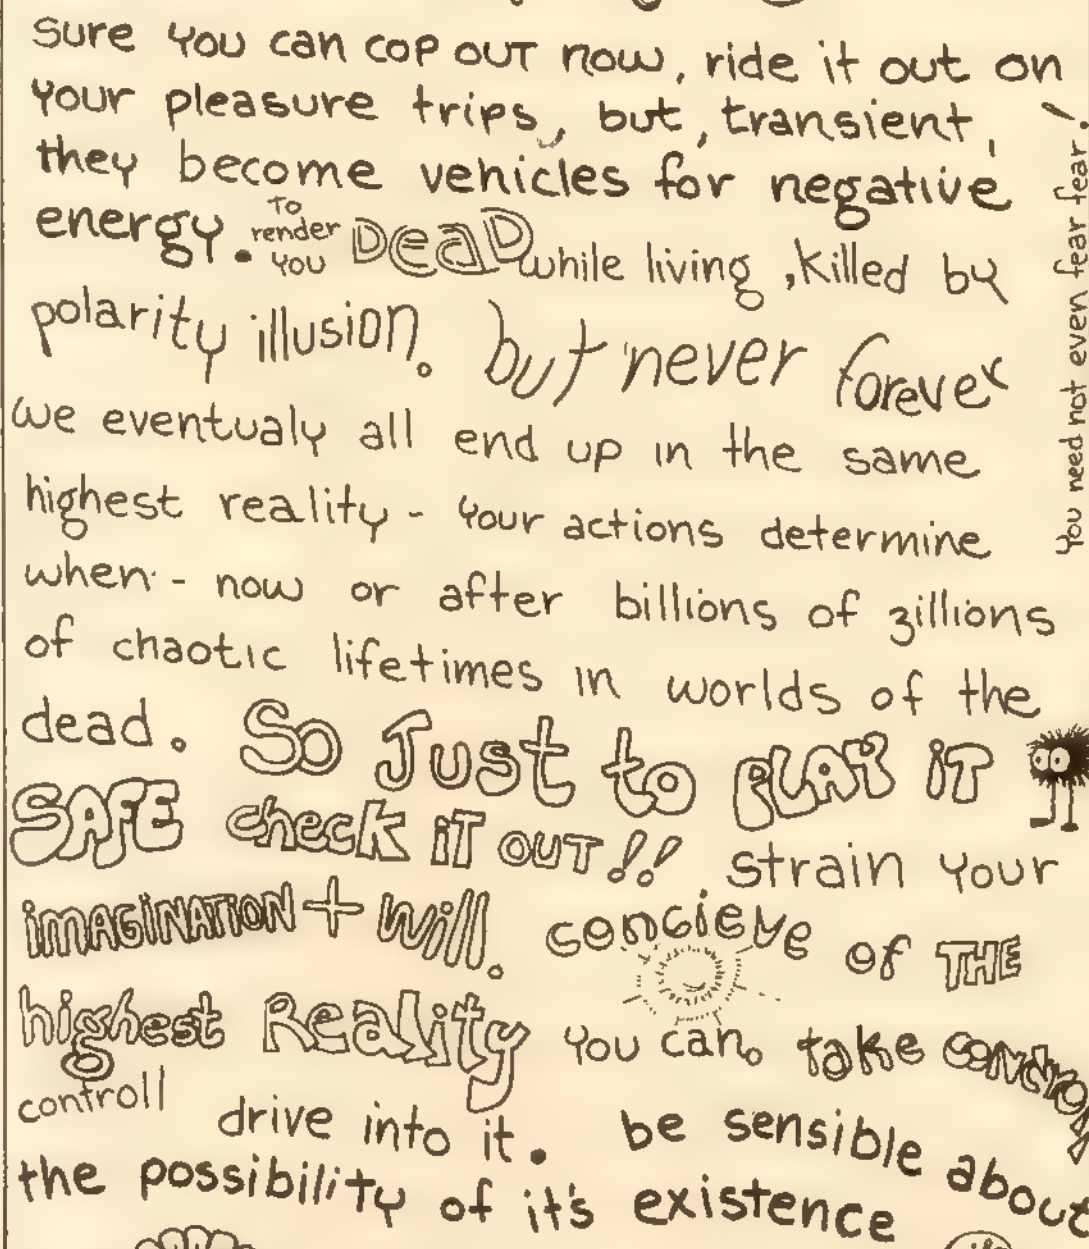 sure you can cop out now, ride it out on
your pleasure trips, but, transient,
they become vehicles for negative
energy. To render you DeaD while living, killed by
polarity illusion. but never forever
we eventualy all end up in the same
highest reality - your actions determine
when - now or after billions of zillions
of chaotic lifetimes in worlds of the
dead. So Just to PLAY iT
SAFE check iT OUT!! strain your
imAGiNATiON + will. concieve of THE
highest Reality you can. take control
controll drive into it. be sensible about
the possibility of it's existence
You need not even fear fear!